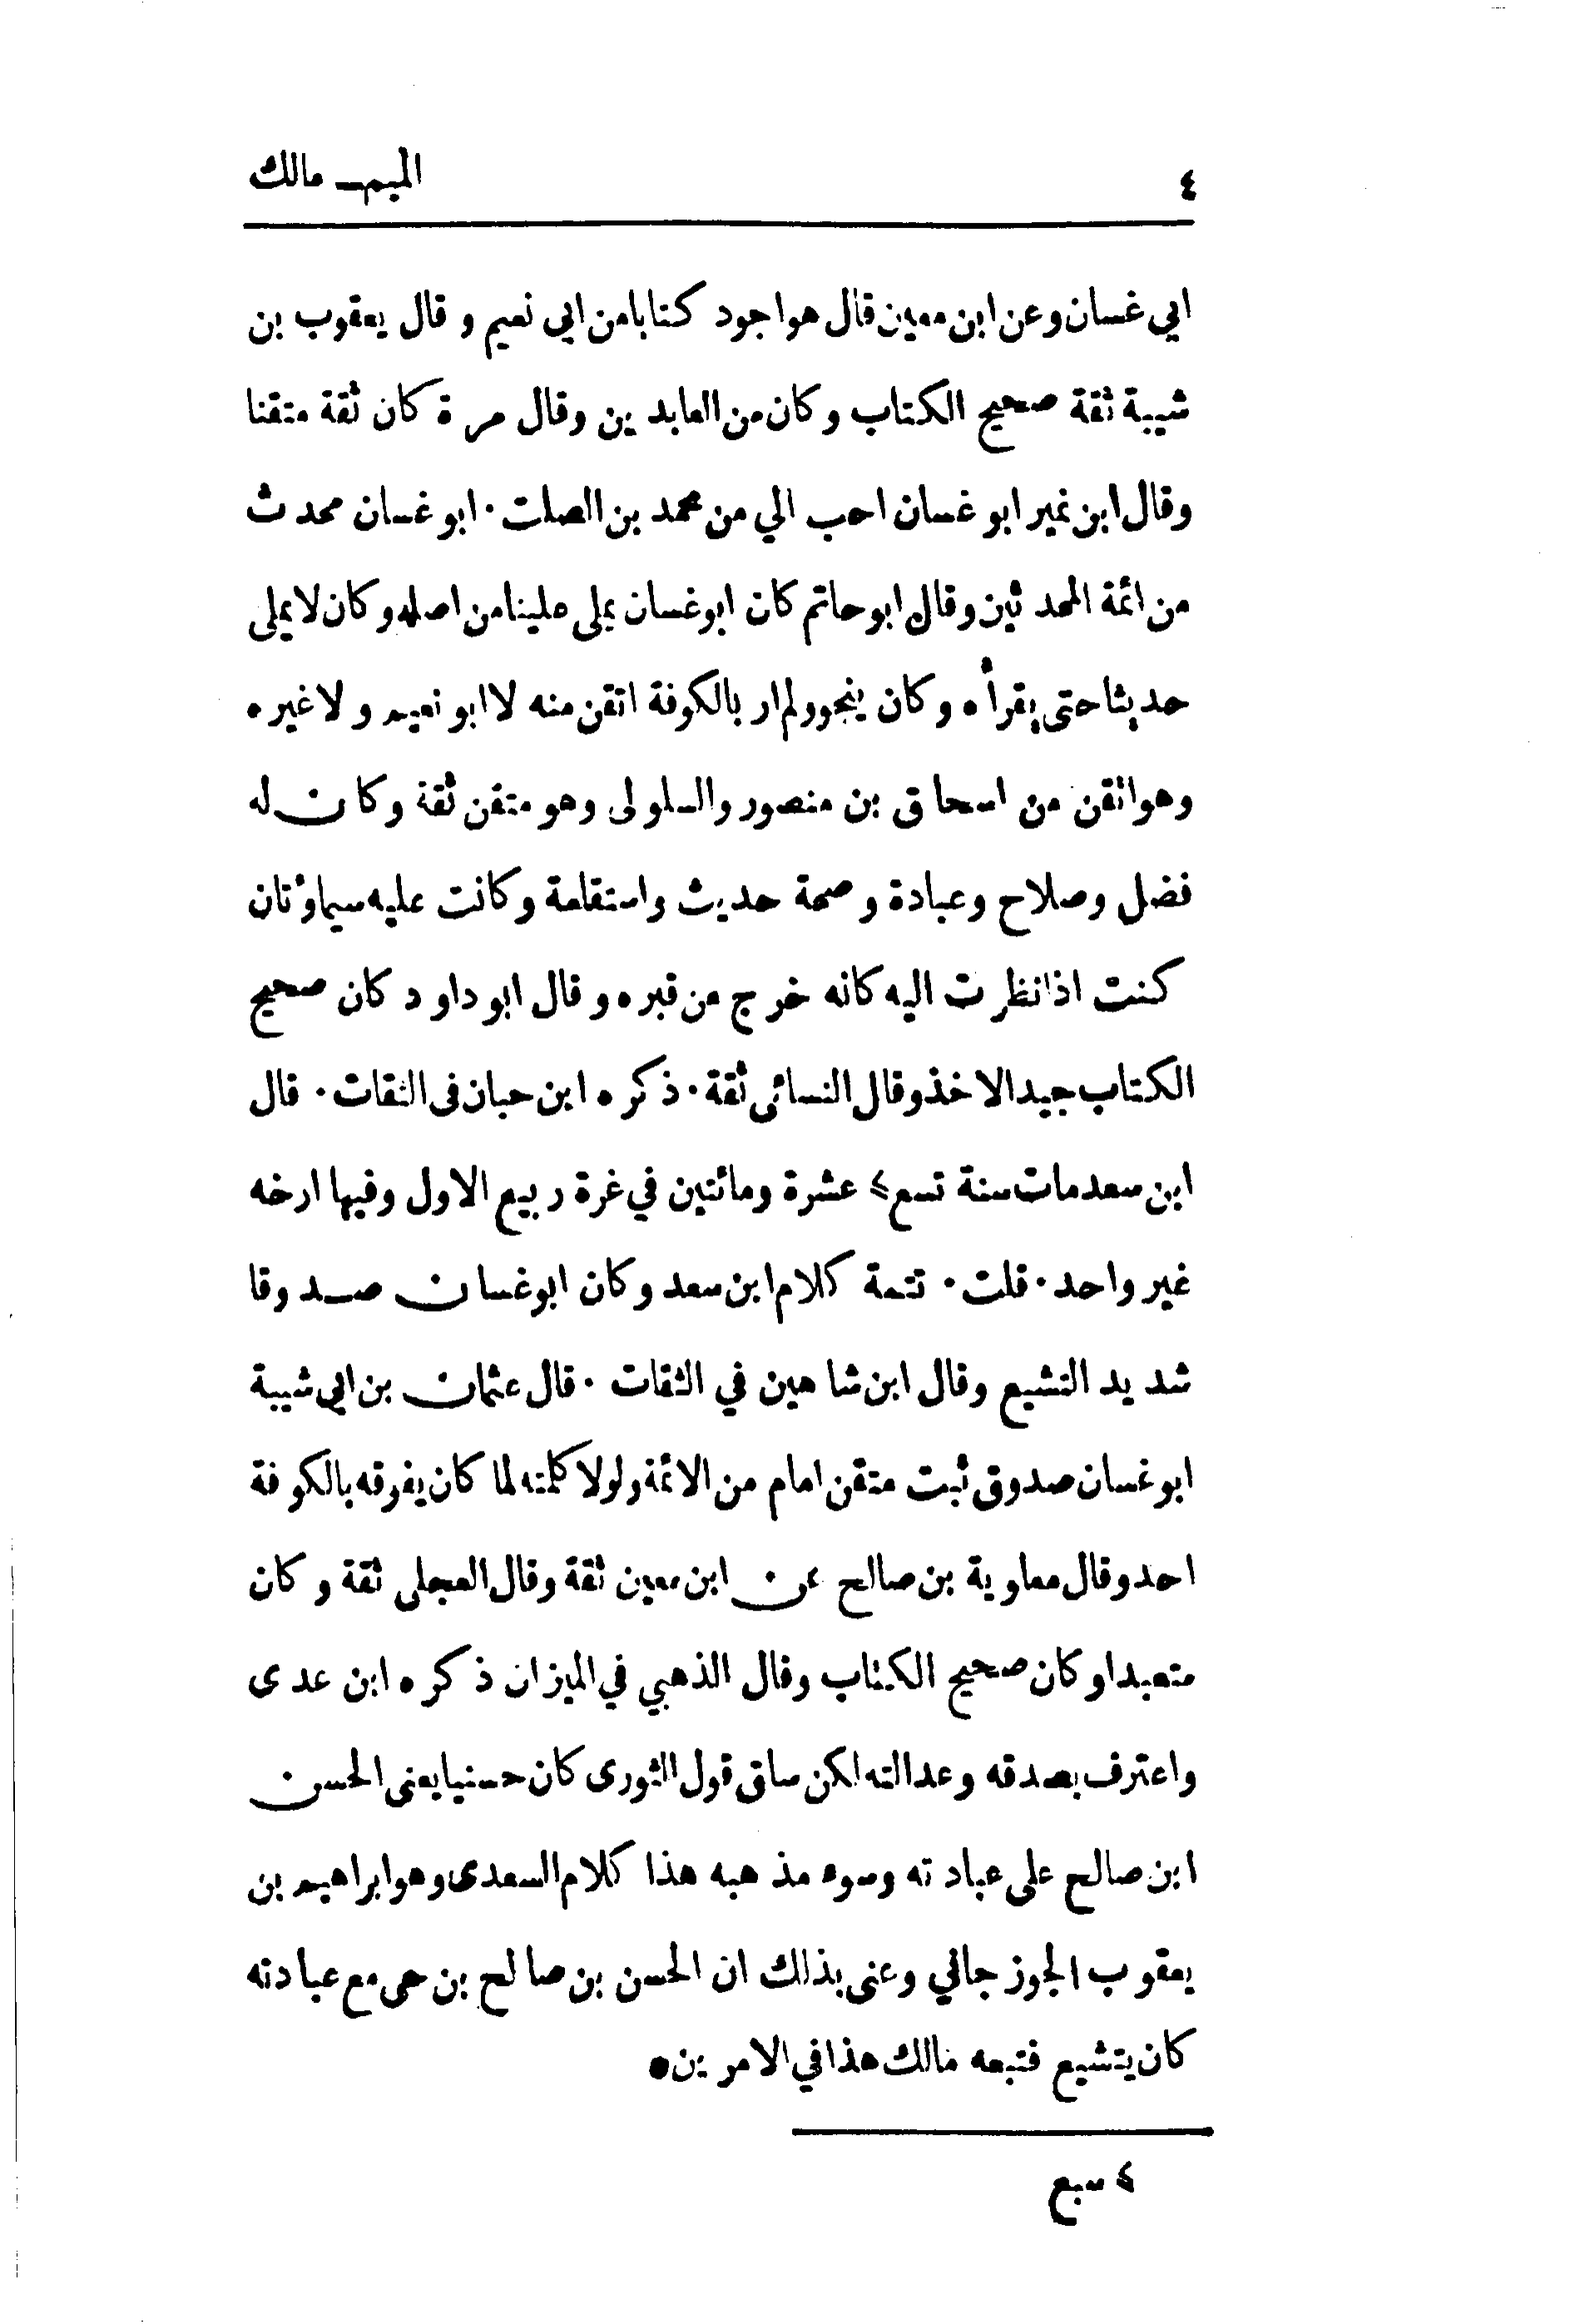 ٤ الميم ـ مالك
ابي غسان وعن ابن معين قال هو اجود كتابا من ابي نعيم و قال يعقوب بن
شيبة ثقة صحيح الكتاب وكان من العابدين وقال مرة كان ثقة متقنا
وقال ابن نمير ابو غسان احب الي من محمد بن الصلت ۰ ابو غسان محدث
من ائمة المحدثين وقال ابو حاتم كان ابو غسان يملى علينا من اصله وكان لا يملى
حديثا حتى يقرأه وكان ينحو ولم ار بالكوفة اتقن منه لا ابو نعيم ولا غيره
وهو اتقن من اسحاق بن منصور والسلولى وهو متقن ثقة وكان له
فضل وصلاح وعبادة وصحة حديث واستقامة وكانت عليه سجادتان
كنت اذا نظرت اليه كانه خرج من قبره وقال ابو داود كان صحيح
الكتاب جيد الاخذ وقال النسائى ثقة ۰ ذكره ابن حبان فى الثقات ۰ قال
ابن سعد مات سنة تسع ﴾ عشرة ومائتين في غرة ربيع الاول وفيها ارخه
غير واحد ۰ قلت ۰ تتمة كلام ابن سعد وكان ابو غسان صدوقا
شديد التشيع وقال ابن شاهين في الثقات ۰ قال عثمان بن ابي شيبة
ابو غسان صدوق ثبت متقن امام من الائمة ولولا كلمته لما كان يفوقه بالكوفة
احد وقال معاوية بن صالح عن ابن معين ثقة وقال العجلى ثقة وكان
متعبدا وكان صحيح الكتاب وقال الذهبي في الميزان ذكره ابن عدى
واعترف بصدقه وعدالته لكن ساق قول الثورى كان حسنيا يعنى الحسن
ابن صالح على عبادته وسوء مذهبه هذا كلام السعدى وهو ابراهيم بن
يعقوب الجوزجاني وعنى بذلك ان الحسن بن صالح بن حى مع عبادته
كان يتشيع فتبعه مالك هذا في الامرين
﴾ سبع